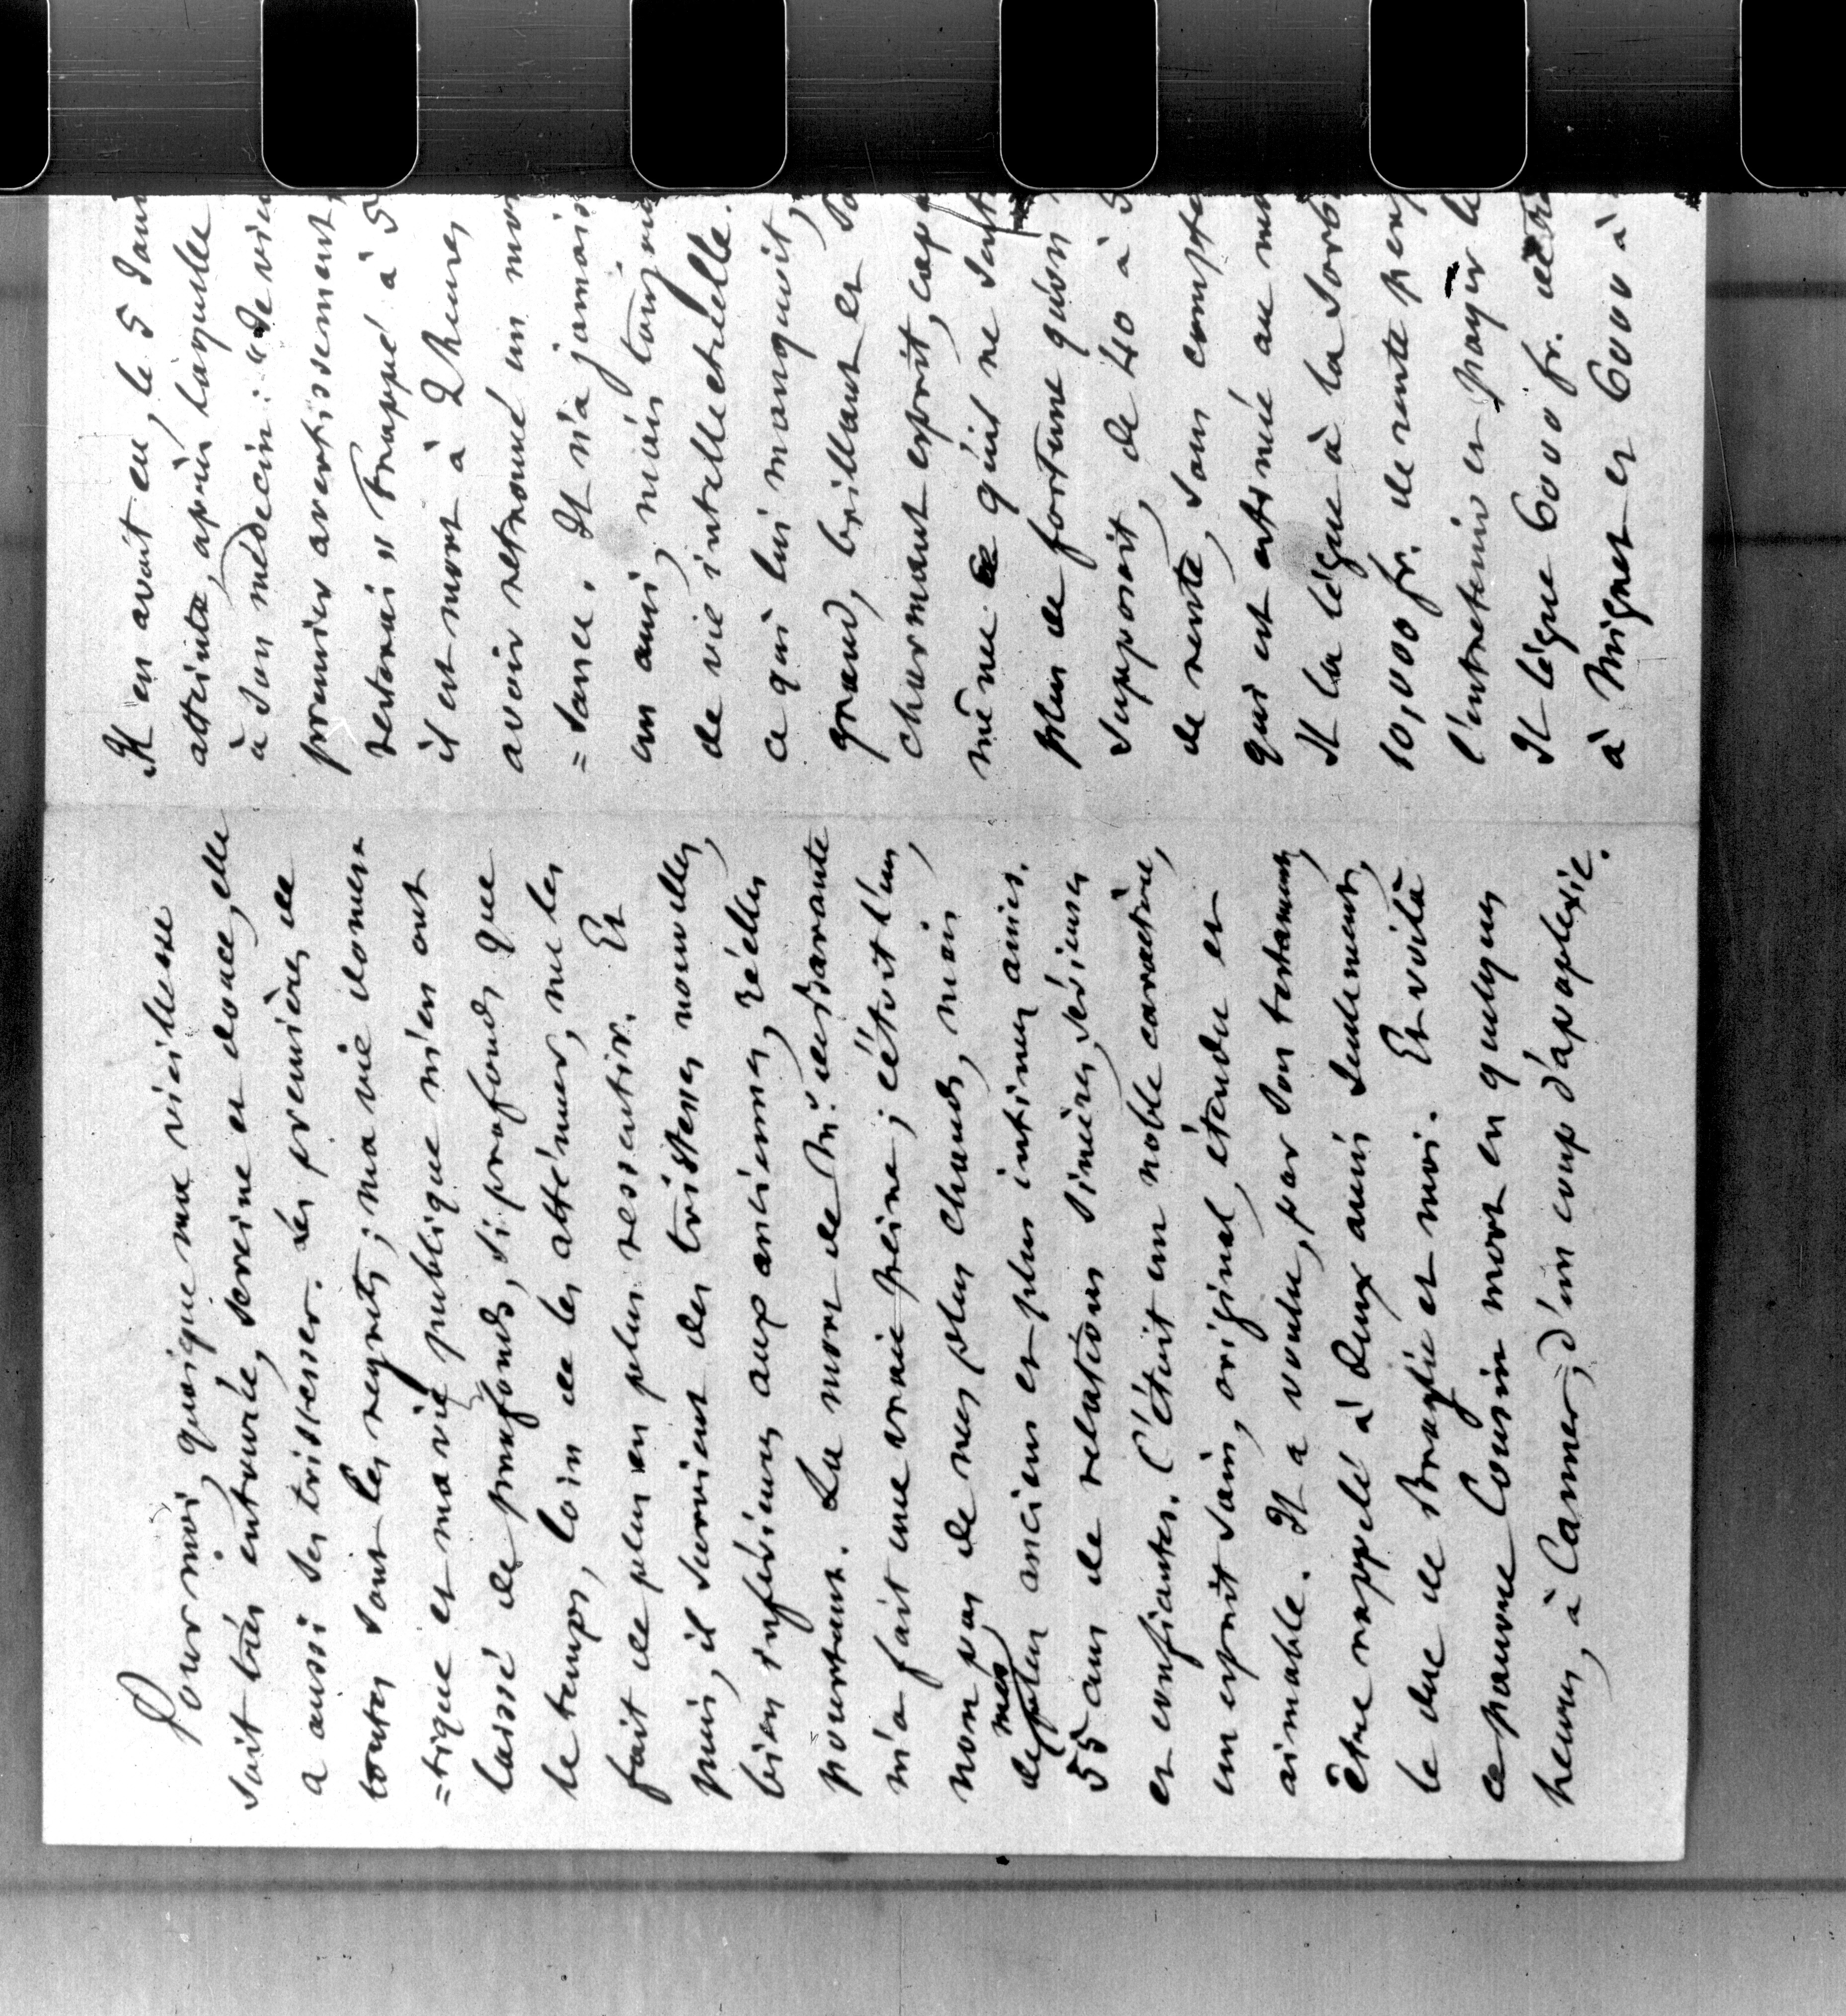 Pour moi, quoique ma vieillesse
soit très entourée, sereine et douce, elle
a aussi ses tristesses. Les premières de
toutes sont les regrets ; ma vie domes-
=tique et ma vie publique m'en ont
laissé de profonds, si profonds que
le temps, loin de les atténuer, me les
fait de plus en plus ressentir. Et
puis, il survient des tristesses nouvelles,
bien inférieures aux anciennes, réelles
pourtant. La mort de Mr. de Barante
m'a fait une vraie peine ; c'étoit l'un,
non pas de mes plus chauds, mais
de mes plus anciens et plus intimes amis.
55 ans de relations sincères, sérieuses
et confiantes. C'étoit un noble caractère,
un esprit sain, original, étendu et
aimable. Il a voulu, par son testament,
être rappelé à deux amis seulement,
le duc de Broglie et moi. Et voilà
ce pauvre Cousin mort en quelques
heures, à Cannes, d'un coup d'apoplexie.
Il en avoit eu, le 5 Jan
atteinte, après laquelle
à son médecin : "Je vie
premier avertissement,
retenai" Frappé à 5
il est mort à 2 heures
avoir retrouvé un mo
=sance. Il n'a jamais
un ami, mais
de vie intellectuelle.
ce qui lui manquoit,
grand, brillant et
charmant esprit,
même ce qu'ils ne sont
plus de fortune qu'on
supposoit, de 40 à 5
de rente, sans compte
qui est estimée au mo
Il la lègue à la Sorb
10,000 fr. de rente
l'entretenir et payer le
Il lègue 6000 fr.
à Mignet et 6000 à